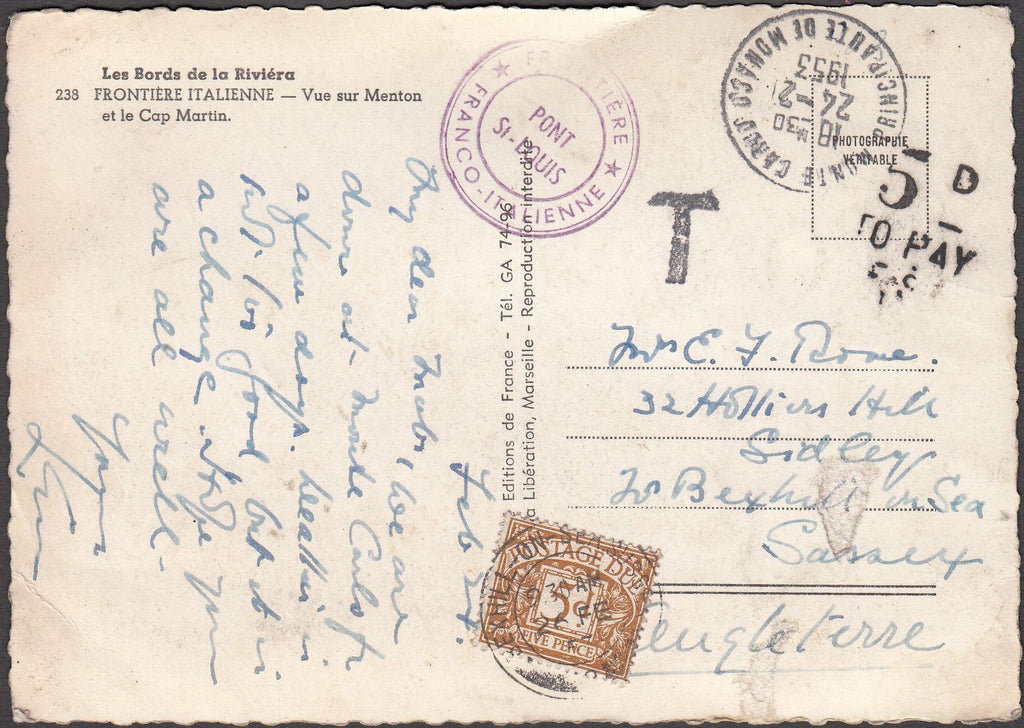 Les Bords de la Riviéra
238 FRONTIÈRE ITALIENNE — Vue sur Menton
et le Cap Martin.
FRONTIÈRE
FRANCO-ITALIENNE
PONT
St-LOUIS
MONTE CARLO PRINCIPAUTE DE MONACO
18 30
24 -2
1953
PHOTOGRAPHIE
VÉRITABLE
T
5 D
TO PAY
Editions de France - Tél. GA 74-96
La Libération, Marseille - Reproduction interdite
Feb 24.
My dear Mabs, we are
down at Monte Carlo for
a few days.
is good but it is
a change. Hope you
are all well.
Yours
Mrs C. F. Bone.
32 Holliers Hill
Sidley
Nr Bexhill on Sea
Sussex
Engleterre
POSTAGE DUE
5D
FIVE PENCE
BEXHILL-ON-
AM
FE